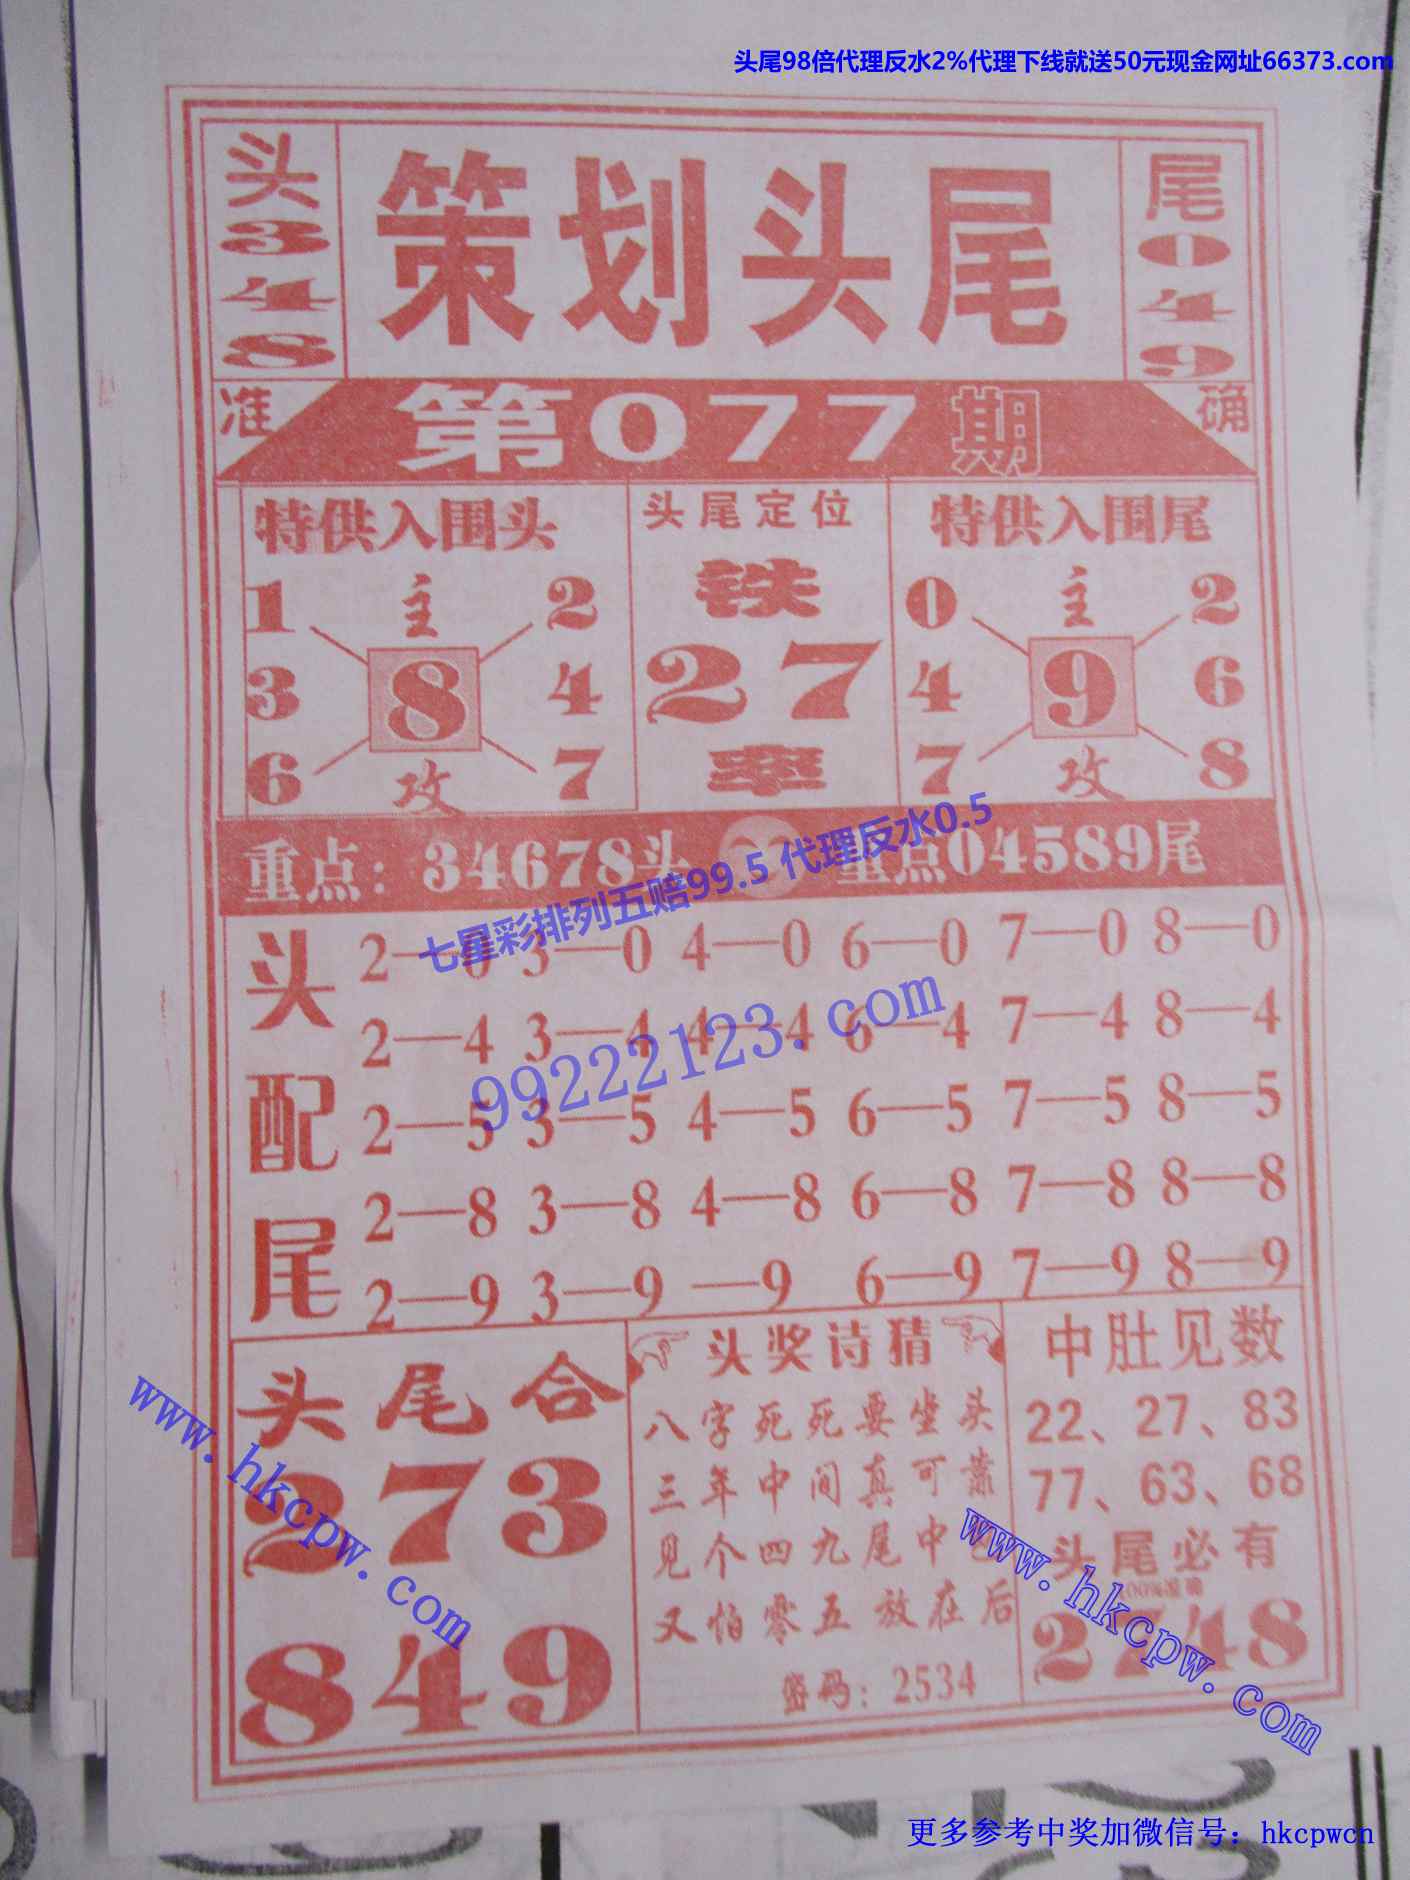 头尾98倍代理反水2%代理下线就送50元现金网址66373.com
头348
策划头尾
尾049
准
第077期
确
特供入围头
1 主 2
3 8 4
6 攻 7
头尾定位
铁
27
率
特供入围尾
0 主 2
4 9 6
7 攻 8
重点：34678头
重点04589尾
七星彩排列五赔99.5 代理反水0.5
99222123.com
头配尾
2—0 3—0 4—0 6—0 7—0 8—0
2—4 3—4 4—4 6—4 7—4 8—4
2—5 3—5 4—5 6—5 7—5 8—5
2—8 3—8 4—8 6—8 7—8 8—8
2—9 3—9 —9 6—9 7—9 8—9
头尾合
273
849
头奖诗猜
八字死死要坐头
三年中间真可靠
见个四九尾中
又怕零五放在后
密码：2534
中肚见数
22、27、83
77、63、68
头尾必有
100%准确
2748
www.hkcpw.com
www.hkcpw.com
更多参考中奖加微信号：hkcpwcn